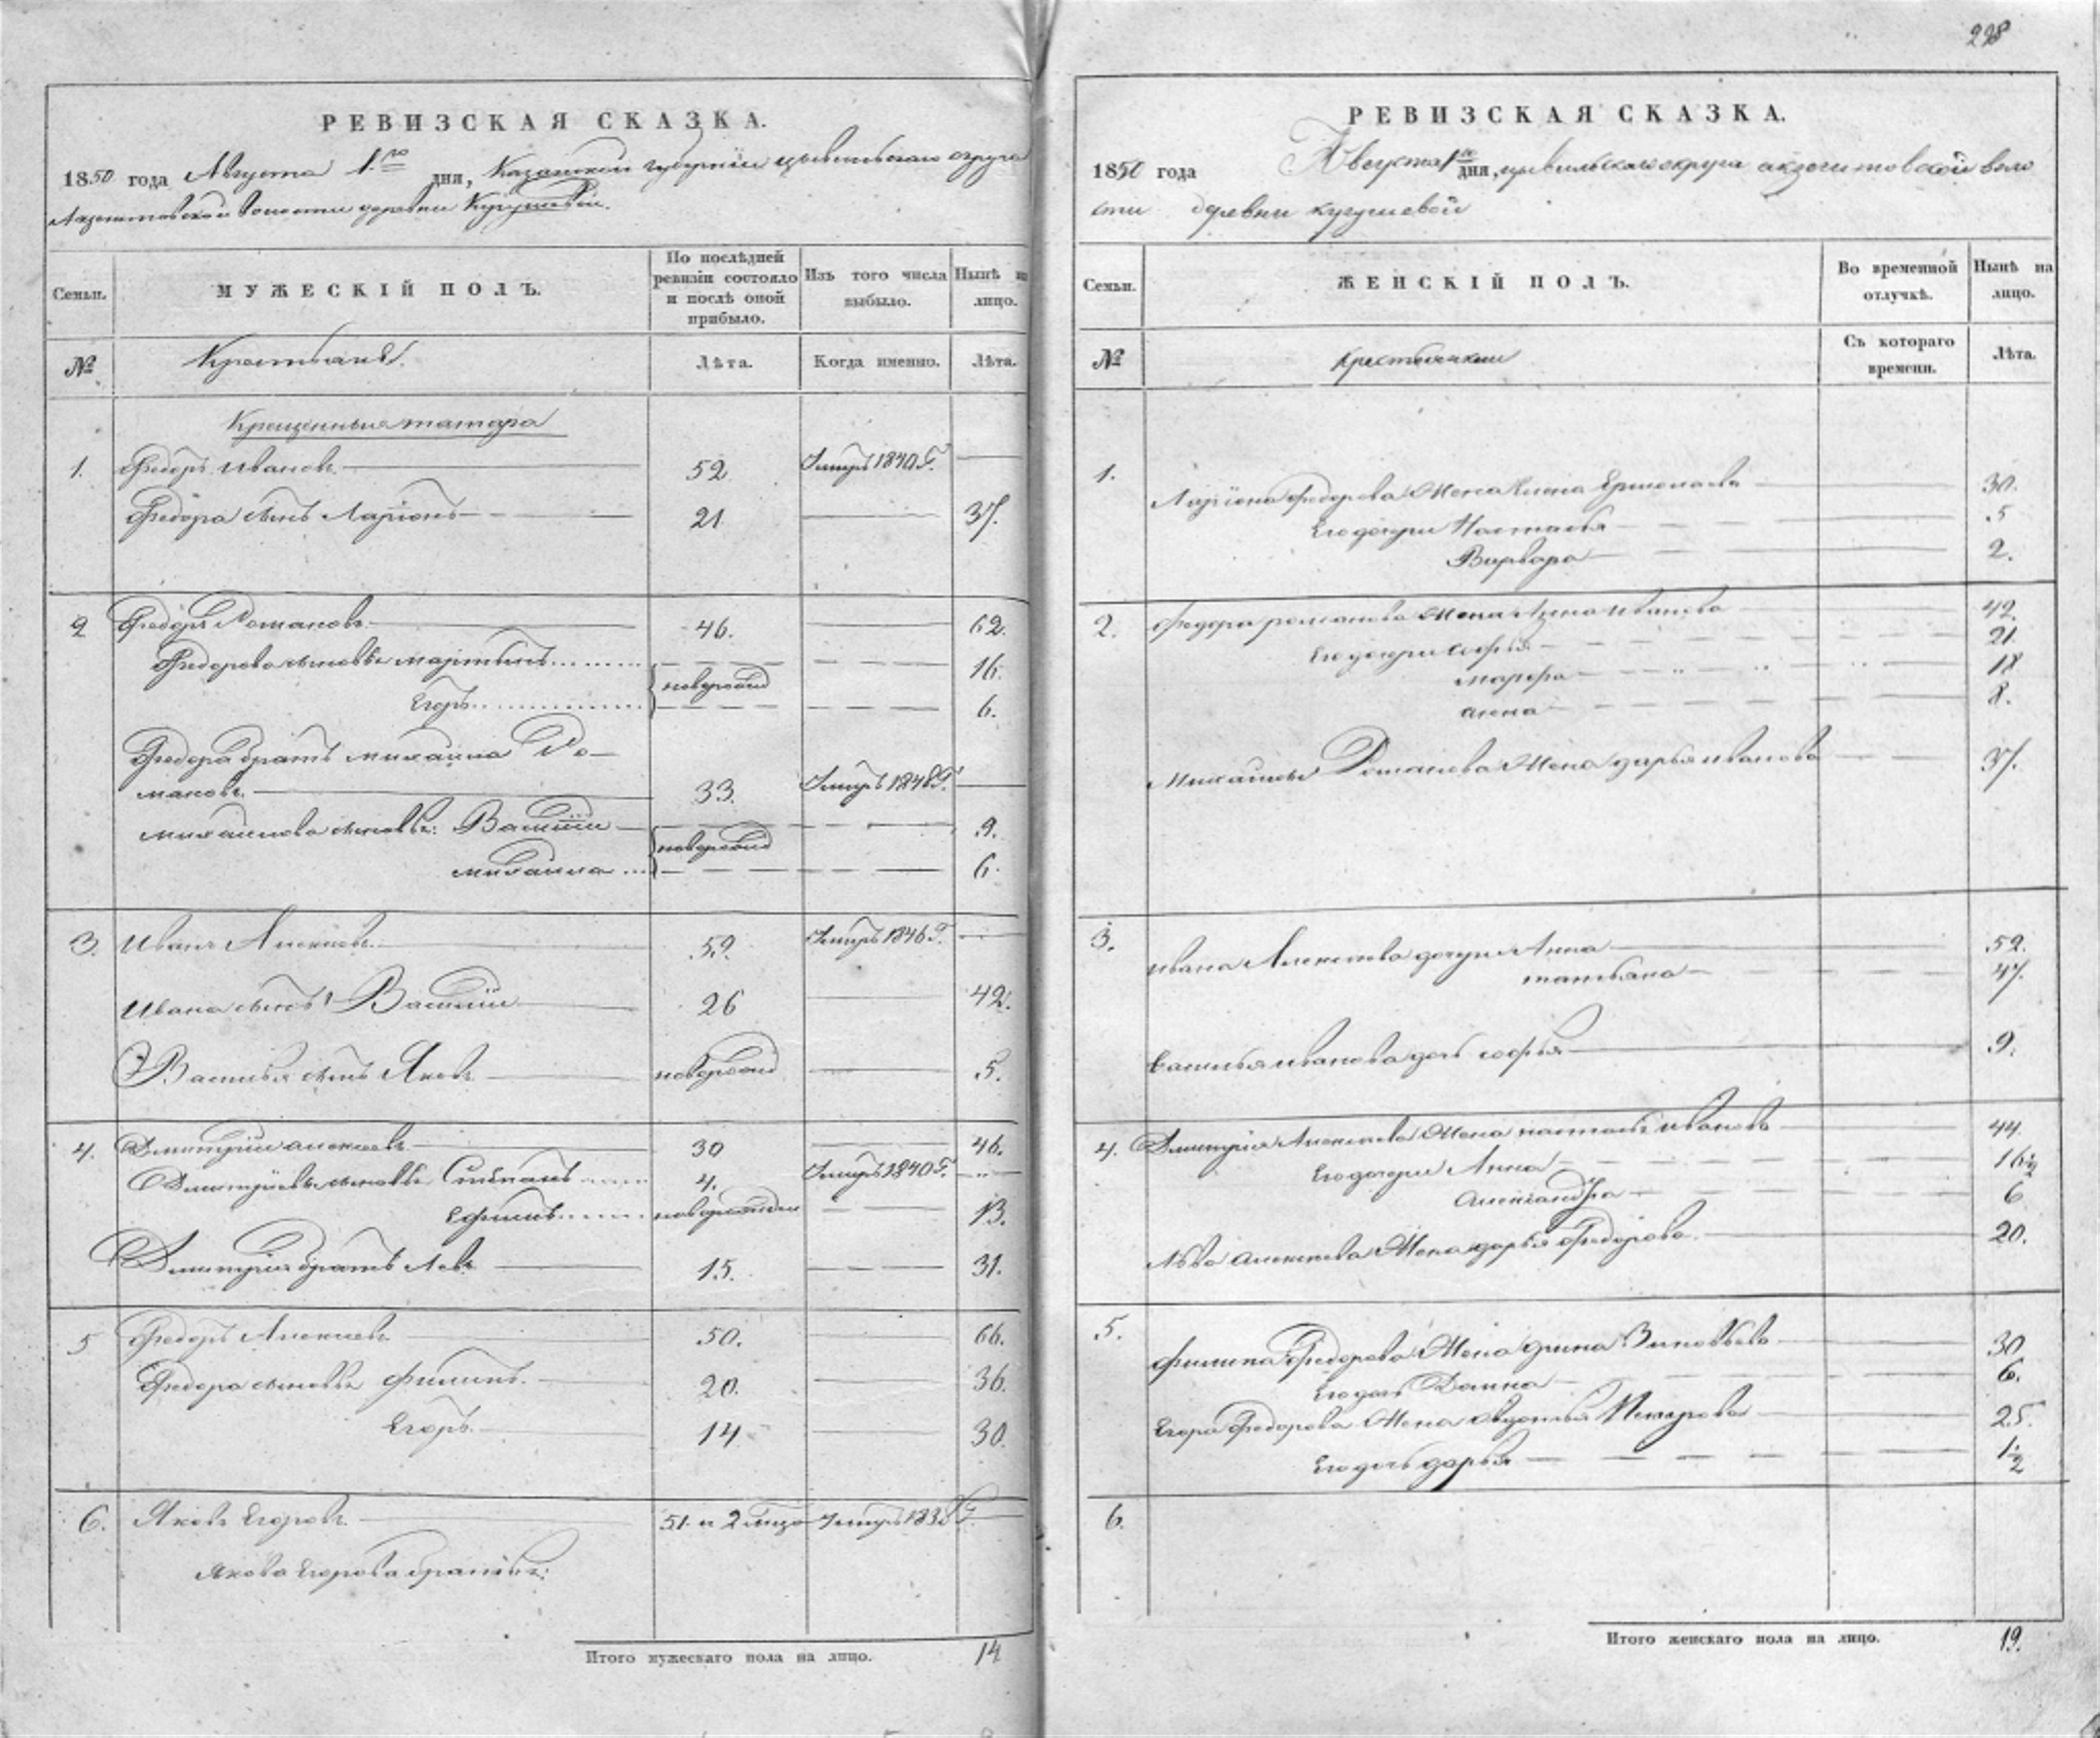 РЕВИЗСКАЯ СКАЗКА.
1850 года Августа 1го дня, Казанской губернiи цывильскаго округа
волости деревни Кугушевой.
Семьи.
МУЖЕСКIЙ ПОЛЪ.
По послѣдней ревизiи состояло и послѣ оной прибыло.
Изъ того числа выбыло.
Нынѣ на лицо.
№
Крестьянъ.
Лѣта.
Когда именно.
Лѣта.
Крещенныя татара
1. Федоръ Ивановъ 52 Умеръ 1840 г.
Федора сынъ Ларiонъ 21 37.
2 Федоръ Романовъ 46. 62.
Федорова сыновья Мартынъ 16.
новорожд
Егоръ 6.
Федора братъ Михаила Ро-
мановъ 33. Умеръ 1848 г.
Михаилова сыновья: Василiй 9.
новорожд
Михаила 6.
3. Иванъ Алексеевъ 59. Умеръ 1846 г.
Ивана сынъ Василiй 26 42.
Василья сынъ Яковъ новорожд 5.
4. Дмитрiй Алексеевъ 30 46.
Дмитрiевы сыновья Степанъ 4. Умеръ 1840 г.
Ефимъ новорожден 13.
Дмитрiя братъ Левъ 15. 31.
5 Федоръ Алексеевъ 50. 66.
Федора сыновья Филипъ 20. 36.
Егоръ 14 30.
6. Яковъ Егоровъ 51. и 2 Умеръ
Якова Егорова братья:
Итого мужескаго пола на лицо. 14
228
РЕВИЗСКАЯ СКАЗКА.
1850 года Августа 1го дня, цывильскаго округа акзегитовской воло
сти деревни кугушевой
Семьи.
ЖЕНСКIЙ ПОЛЪ.
Во временной отлучкѣ.
Нынѣ на лицо.
№
крестьянки
Съ котораго времени.
Лѣта.
1. Ларiона Федорова Жена Елена Ермолаева 30.
Его дочери Настасья 5
Варвара 2.
2. Федора романова Жена Анна Иванова 42.
Его дочери софья 21
марфа 18
анна 8.
Михаилы Романова Жена дарья иванова 37.
3. ивана Алексеева дочери Анна 52.
татьяна 47.
василья иванова дочь софья 9.
4. Дмитрия Алексеева Жена настасья иванова 44.
Его дочери Анна 16½
Александра 6
Лва алексеева Жена дарья Федорова 20.
5. филипа Федорова Жена Зиновьева 30
Его дочь 6.
Егора Федорова Жена авдотья 25.
Его дочь дарья 1½
6.
Итого женскаго пола на лицо. 19.